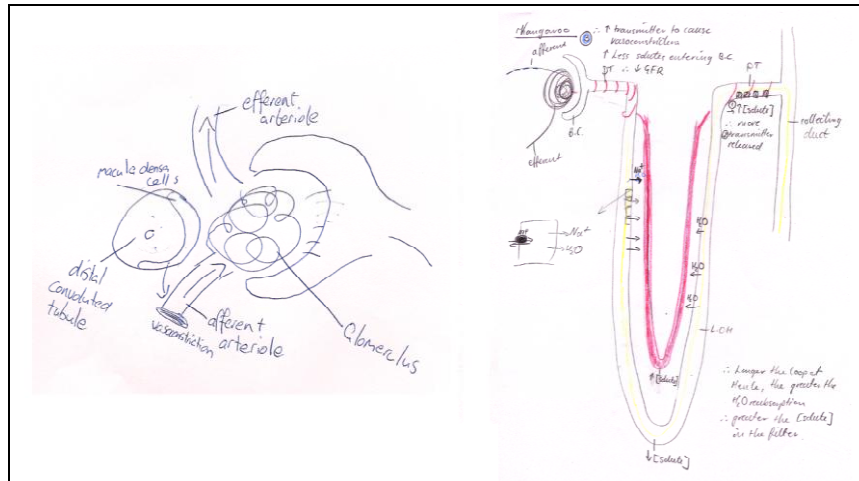 efferent
arteriole
macula densa
cells
distal
convoluted
tubule
vasoconstriction
afferent
arteriole
Glomerulus
Kangaroo
∴ ↑ transmitter to cause
vasoconstriction
↑ Less solutes entering B.C.
∴ ↓ GFR
afferent
PT
B.C.
efferent
DT
↑[solute]
∴ more
transmitter
released
collecting
duct
Na⁺
Na⁺
H₂O
H₂O
H₂O
H₂O
LOH
↑[solute]
↓[solute]
∴ Longer the loop of
Henle, the greater the
H₂O reabsorption
∴ greater the [solute]
in the filter.